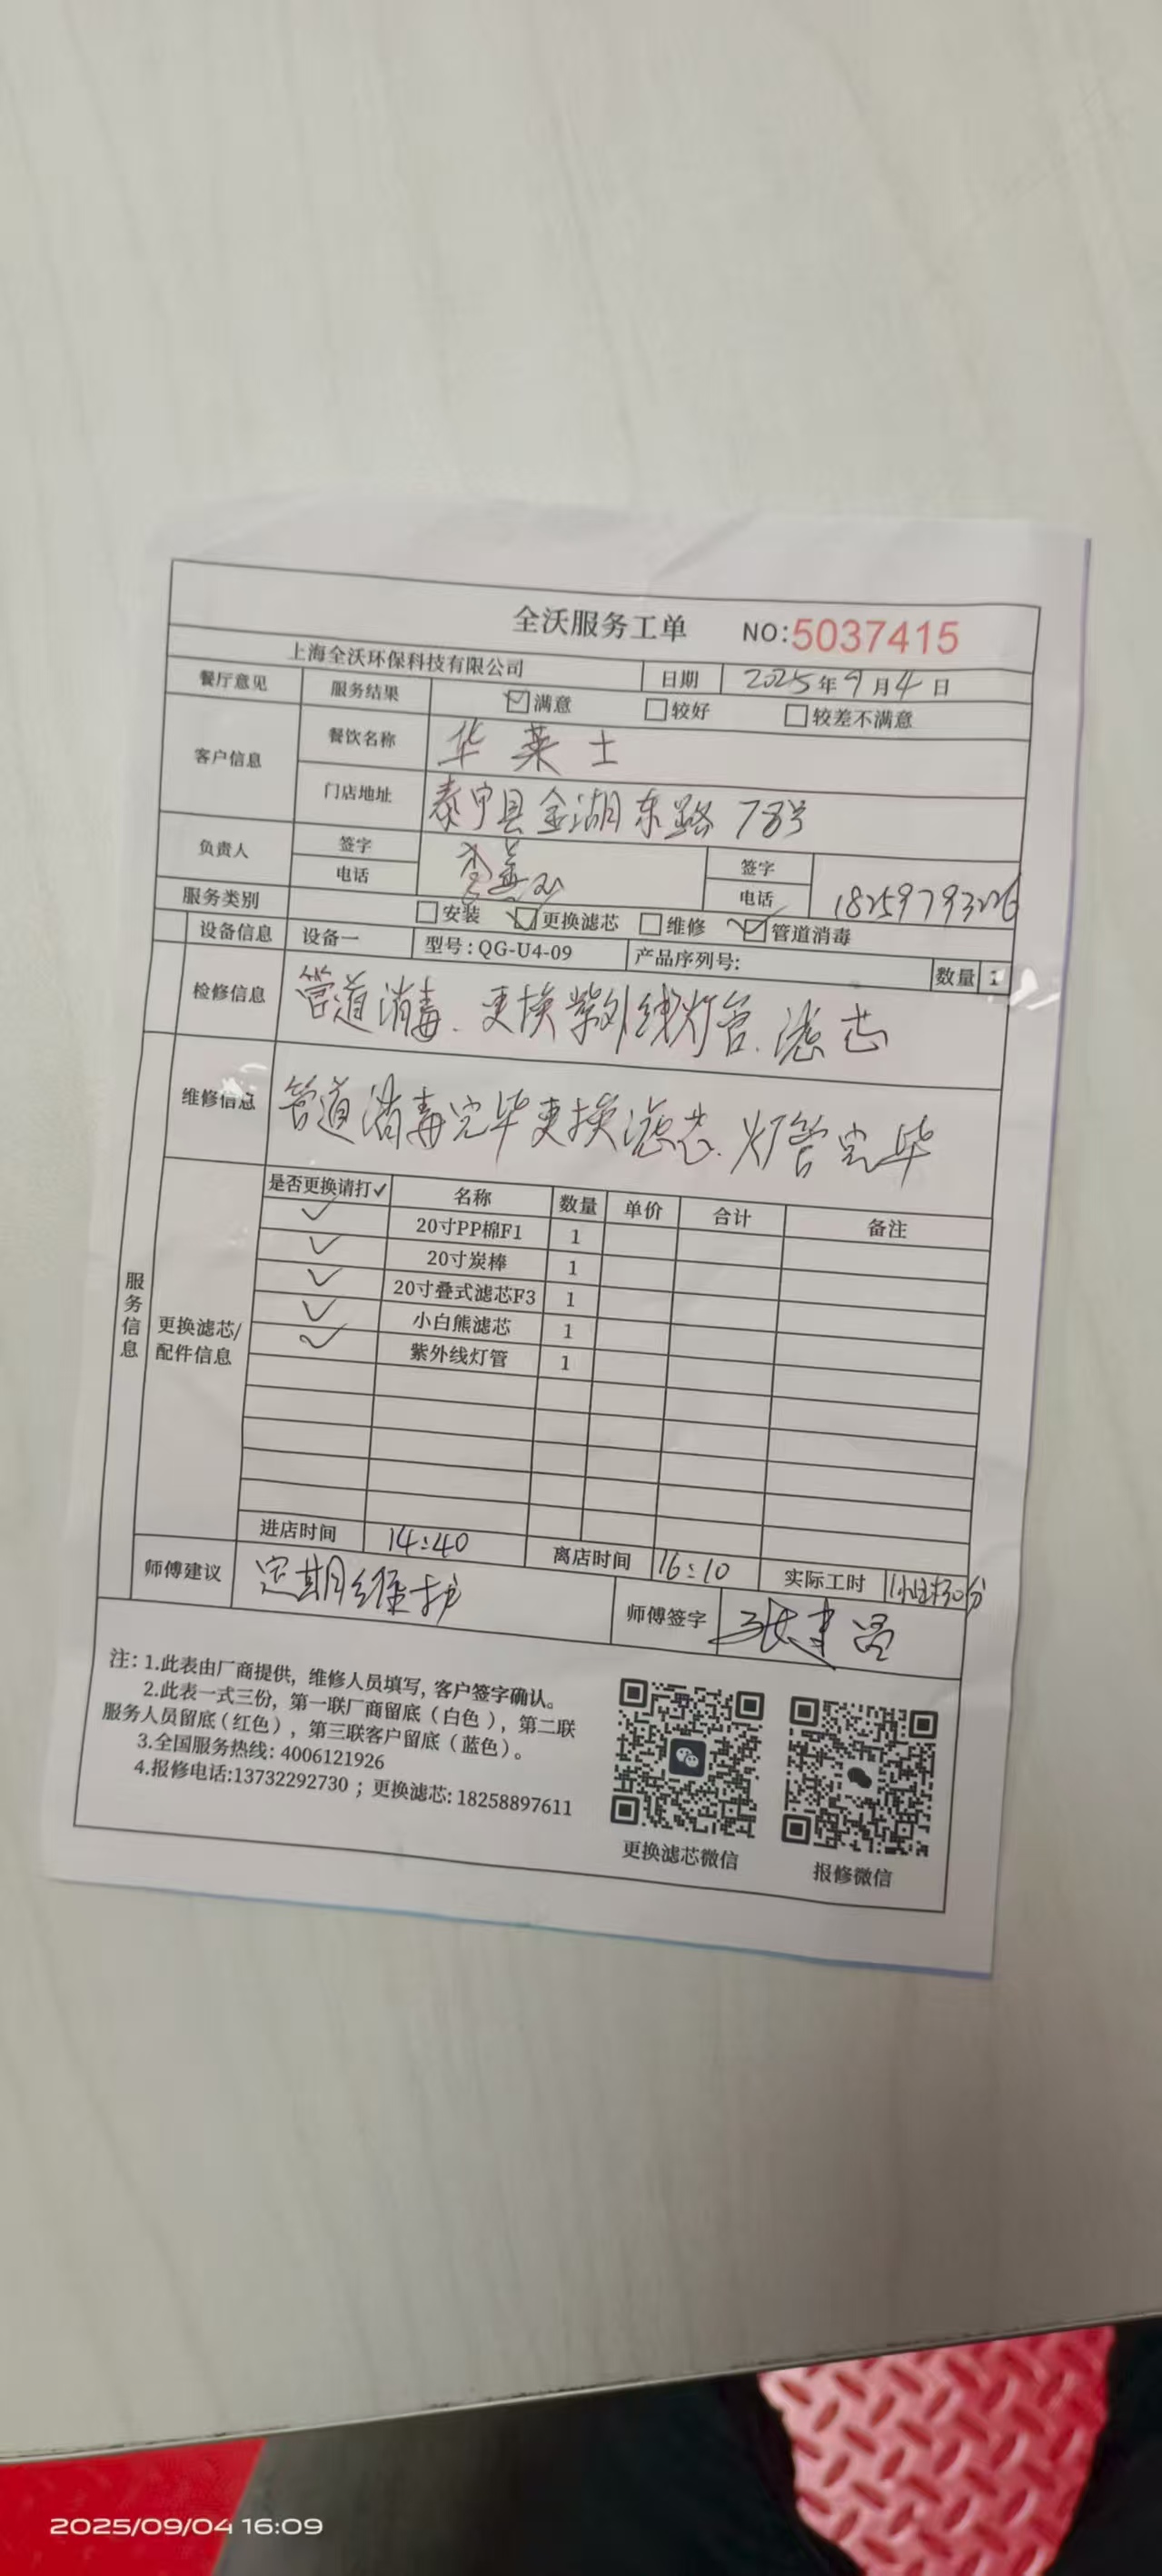 全沃服务工单 NO:5037415
上海全沃环保科技有限公司 日期 2025年9月4日
餐厅意见 服务结果 ☑满意 □较好 □较差不满意
客户信息 餐饮名称 华莱士
门店地址 泰宁县金湖东路78号
负责人 签字 签字
电话 电话 18259793226
服务类别 □安装 ☑更换滤芯 □维修 ☑管道消毒
设备信息 设备一 型号:QG-U4-09 产品序列号: 数量 1
检修信息 管道消毒、更换紫外线灯管、滤芯
维修信息 管道消毒完毕更换滤芯、灯管完毕
服务信息
更换滤芯/配件信息
是否更换请打✓ 名称 数量 单价 合计 备注
✓ 20寸PP棉F1 1
✓ 20寸炭棒 1
✓ 20寸叠式滤芯F3 1
✓ 小白熊滤芯 1
✓ 紫外线灯管 1
进店时间 14:40 离店时间 16:10 实际工时 1小时30分
师傅建议 定期维护 师傅签字 张建昌
注: 1.此表由厂商提供，维修人员填写，客户签字确认。
2.此表一式三份，第一联厂商留底（白色），第二联
服务人员留底（红色），第三联客户留底（蓝色）。
3.全国服务热线: 4006121926
4.报修电话:13732292730 ；更换滤芯: 18258897611
更换滤芯微信 报修微信
2025/09/04 16:09